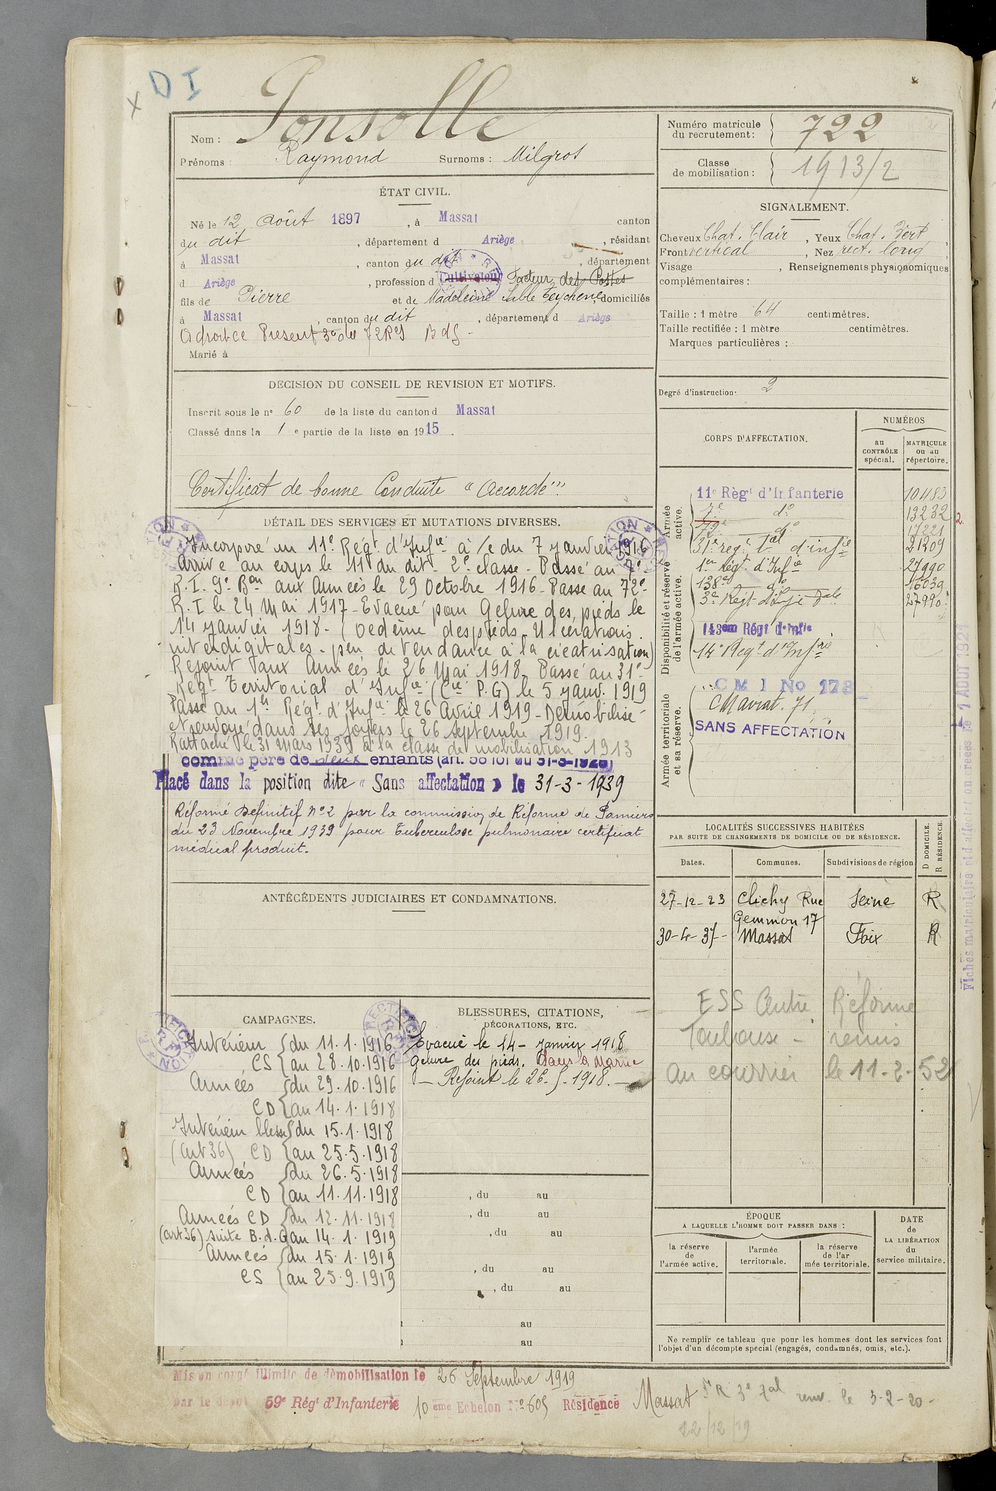 DI
Nom : Ponsolle
Prénoms : Raymond Surnoms : Milgros
Numéro matricule du recrutement : 722
Classe de mobilisation : 1913/2
ÉTAT CIVIL.
Né le 12 Août 1897, à Massat canton
du dit, département d Ariège, résidant
à Massat, canton du dit, département
d Ariège, profession d Cultivateur Facteur des Postes
fils de Pierre et de Madeleine domiciliés
à Massat, canton du dit, département d Ariège
Marié à
SIGNALEMENT.
Cheveux Chat. Clair, Yeux Chat. Vert
Front vertical, Nez rect. long
Visage , Renseignements physionomiques
complémentaires :
Taille : 1 mètre 64 centimètres.
Taille rectifiée : 1 mètre centimètres.
Marques particulières :
Degré d'instruction : 2
DECISION DU CONSEIL DE REVISION ET MOTIFS.
Inscrit sous le n° 60 de la liste du canton d Massat
Classé dans la 1e partie de la liste en 1915.
Certificat de bonne Conduite "Accordé"
DÉTAIL DES SERVICES ET MUTATIONS DIVERSES.
Incorporé au 11e Régt d'Infie à /c du 7 janvier 1916
Arrivé au corps le 11 du dit. 2e classe. Passé au 9e
R.I. 9e Bon aux Armées le 29 Octobre 1916. Passé au 72e
R.I. le 24 Mai 1917. Evacué pour Gelure des pieds le
14 janvier 1918. (Oedème des pieds. Ulcérations
interdigitales. peu de tendance à la cicatrisation)
Rejoint aux Armées le 26 Mai 1918. Passé au 31e
Régt Territorial d'Infie (Cie P.G) le 5 janv. 1919
Passé au 1er Régt d'Infie le 26 Avril 1919. Démobilisé
et renvoyé dans ses foyers le 26 septembre 1919.
Rattaché le 31 Mars 1939 à la classe de mobilisation 1913
comme père de deux enfants (art. 58 loi du 31-3-1928)
Placé dans la position dite « Sans affectation » le 31-3-1939
Réformé Définitif N°2 par la commission de Réforme de Pamiers
du 23 Novembre 1939 pour Tuberculose pulmonaire certificat
médical produit.
CORPS D'AFFECTATION.
NUMÉROS
au CONTRÔLE spécial.
MATRICULE ou au répertoire.
Armée active.
11e Régt d'Infanterie 10483
9e do 13232
72e do
31e régt Tal d'infie 21309
Disponibilité et réserve de l'armée active.
1er Régt d'Infie 27990
138e do
143ème Régt d'Infie
14e Régt d'Infrie
Armée territoriale et sa réserve.
CMI No 173
SANS AFFECTATION
LOCALITÉS SUCCESSIVES HABITÉES
PAR SUITE DE CHANGEMENTS DE DOMICILE OU DE RÉSIDENCE.
Dates. Communes. Subdivisions de région D DOMICILE. R RÉSIDENCE.
27-12-23 Clichy Rue Seine R
Gemmon 17
30-4-37 Massat Foix R
ESS Centre Réforme
Toulouse - remis
au courrier le 11-2-52
ANTÉCÉDENTS JUDICIAIRES ET CONDAMNATIONS.
CAMPAGNES.
Intérieur du 11.1.1916
CS au 28.10.1916
Armées du 29.10.1916
CD au 14.1.1918
Intérieur bless du 15.1.1918
(art 36) CD au 25.5.1918
Armées du 26.5.1918
CD au 11.11.1918
Armées CD du 12.11.1918
(art 36) suite B.d.G au 14.1.1919
Armées du 15.1.1919
CS au 25.9.1919
BLESSURES, CITATIONS,
DÉCORATIONS, ETC.
Evacué le 14 Janvier 1918
Gelure des pieds. dans la Marne
Rejoint le 26.5.1918.
, du au
, du au
, du au
, du au
, du au
au
au
ÉPOQUE
A LAQUELLE L'HOMME DOIT PASSER DANS :
la réserve de l'armée active.
l'armée territoriale.
la réserve de l'armée territoriale.
DATE de LA LIBÉRATION du service militaire.
Ne remplir ce tableau que pour les hommes dont les services font
l'objet d'un décompte spécial (engagés, condamnés, omis, etc.).
Mis en congé illimité de démobilisation le 26 Septembre 1919
par le dépôt 59e Régt d'Infanterie 10ème Echelon N° 605 Résidence Massat
renv. le 3-2-20
22/12/19